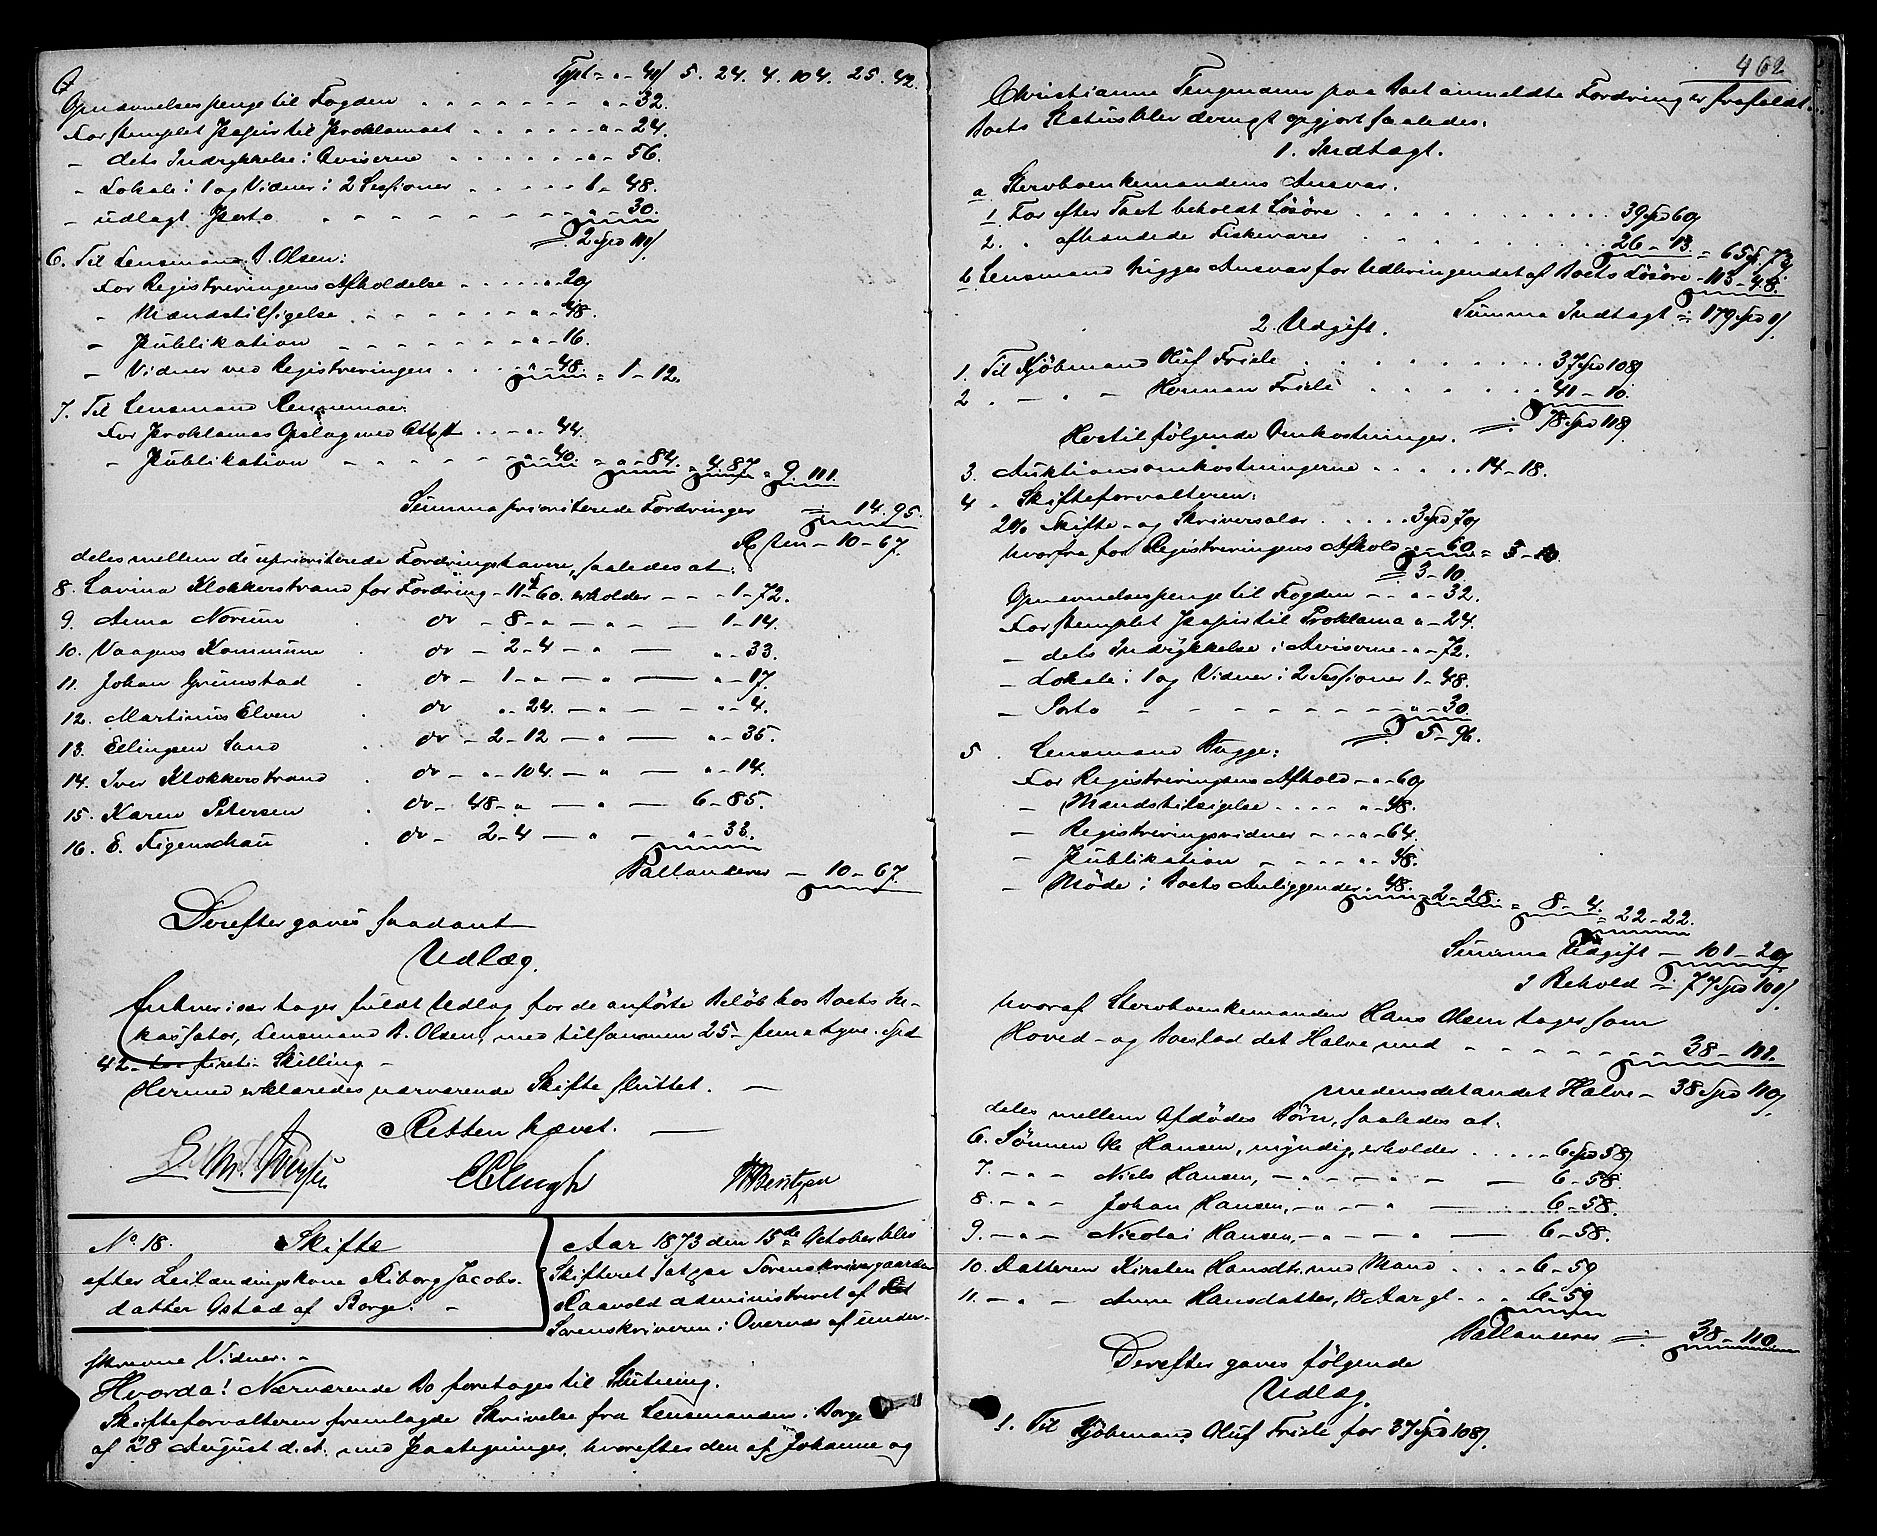 Tpt = " - 40/ 5. 24. 4. 104. 25. 42.
Opnævnelsespenge til Fogden . . . . . . . " - 32.
For stemplet Papir til Proklamaet . . . . . . " - 24.
- dets Indrykkelse i Aviserne . . . . . . " - 56.
- Lokale i 1 og Vidner i 2 Sessioner . . . . . 1 - 48.
- udlagt Porto . . . . . . . . " - 30.
= 2 Spd 110/
6. Til Lensmand B. Olsen:
For Registreringens Afholdelse . . . . . " 20/
- Mændstilsigelse . . . . . . . " - 48.
- Publikation . . . . . . . " - 16.
- Vidner ved Registreringen . . . . " - 48. = 1 - 12.
7. Til Lensmand Rennemoe:
For Proklamas Opslag med Attest . . . " - 44.
- Publikation . . . . . . " - 40. = " - 84. = 4. 87 = 9. 111.
Summa prioriterede Fordringer = 14. 95.
Resten - 10 - 67.
deles mellem de uprioriterede Fordringshavere, saaledes at:
8. Lavina Klokkerstrand for Fordring - 11 - 60. erholder - - - 1 - 72.
9. Anna Norum . do - 8 - " - " - 1 - 14.
10. Vaagens Kommune . do - 2 - 4 - " - " - 33.
11. Johan Grimstad . do - 1 - " - " - " - 17.
12. Martinus Elven . do " - 24. - " - - " - 4.
13. Ellingsen Sand . do - 2 - 12 - " - " - 35.
14. Iver Klokkerstrand . do - " - 104. - " - " - 14.
15. Karen Petersen . do - 48 - " - " - 6 - 85.
16. E. Figenschau . do - 2 - 4 - " - " - 33.
Ballancerer - 10 - 67.
Derefter gaves saadant
Udlæg.
Enhver især tager fuldt Udlæg for de anførte Beløb hos Boets In-
kassator, Lensmand B. Olsen, med tilsammen 25 - fem og tyve - Spd
42 - to og firti - Skilling -
Hermed erklæredes nærværende Skifte sluttet. -
Retten hævet. -
No 18. Skifte
efter Leilændingskone Riborg Jacobs-
datter Ostad af Borge. -
Aar 1873 den 15de October blev
Skifteret sat paa Sorenskrivergaarden
Raavold administreret af Cst
Sorenskriveren i Overvær af under-
skrevne Vidner. -
Hvorda! Nærværende Bo foretages til Slutning.
Skifteforvalteren fremlagde Skrivelse fra Lensmanden i Borge
af 28 August d. A. med Paategninger, hvorefter den af Johanne og
462
Christianne Tengmann paa Boet anmeldte Fordring er frafaldt.
Boets Status blev derngt opgjort saaledes:
1. Indtægt.
a Stervboenkemandens Ansvar.
1. For efter Taxt beholdt Løsøre . . . . . . . . . 39 Spd 60/
2. " afhændede Fiskevarer . . . . . . . 26 - 13. = 65 Sp. 73/
b. Lensmand Bugges Ansvar for Udbringendet af Boets Løsøre - 113 - 48.
Summa Indtægt = 179 Spd 1/
2. Udgift.
1. Til Kjøbmand Oluf Friele . . . . . . . . 37 Spd 108/
2 . - " - Herman Friele . . . . . . . 41 - 10.
= 78 Spd 118/
Hertil følgende Omkostninger.
3. Auktionsomkostningerne . . . . . 14 - 18.
4 . Skifteforvalteren:
2% Skifte- og Skriversalær . . . . . 3 Spd 70/
hvorfra for Registreringens Afhold - " - 60
= 3 - 10.
Opnævnelsespenge til Fogden - - " - 32.
For stemplet Papir til Proklama " - 24.
- dets Indrykkelse i Aviserne - " - 72.
- Lokale i 1 og Vidner i 2 Sessioner 1 - 48.
- Porto - - - - - - - - " - 30.
= 5 - 96.
5 . Lensmand Bugge:
For Registreringens Afhold - " - 60/
- Mændstilsigelse . . . . " - 48.
- Registreringsvidner - - - " - 64.
- Publikation - . . . " - 48.
- Møde i Boets Anliggender . 48. = 2 - 28. = 8 - 4. = 22 - 22.
Summa Udgift - 101 - 20/
I Behold = 77 Spd 101/
hvoraf Stervboenkemanden Hans Olsen tager som
Hoved- og Boeslod det Halve med - - - - - - - 38 - 111.
medens det andet Halve - 38 Spd 110/
deles mellem Afdødes Børn, saaledes at:
6. Sønnen Ole Hansen, myndig, erholder . . . . . 6 Spd 58/
7. - " - Niels Hansen, - " - - " - - 6 - 58.
8. - " - Johan Hansen, - " - " - - 6 - 58.
9. - " - Nicolai Hansen, - " - " - 6 - 58.
10. Datteren Kirsten Hansdtr. med Mand . . . . 6 - 59
11. - " - Anne Hansdatter, 18 Aar gl. . . . 6 - 59
Ballancerer = 38 - 110.
Derefter gaves følgende
Udlæg.
1. Til Kjøbmand Oluf Friele for 37 Spd 108/.